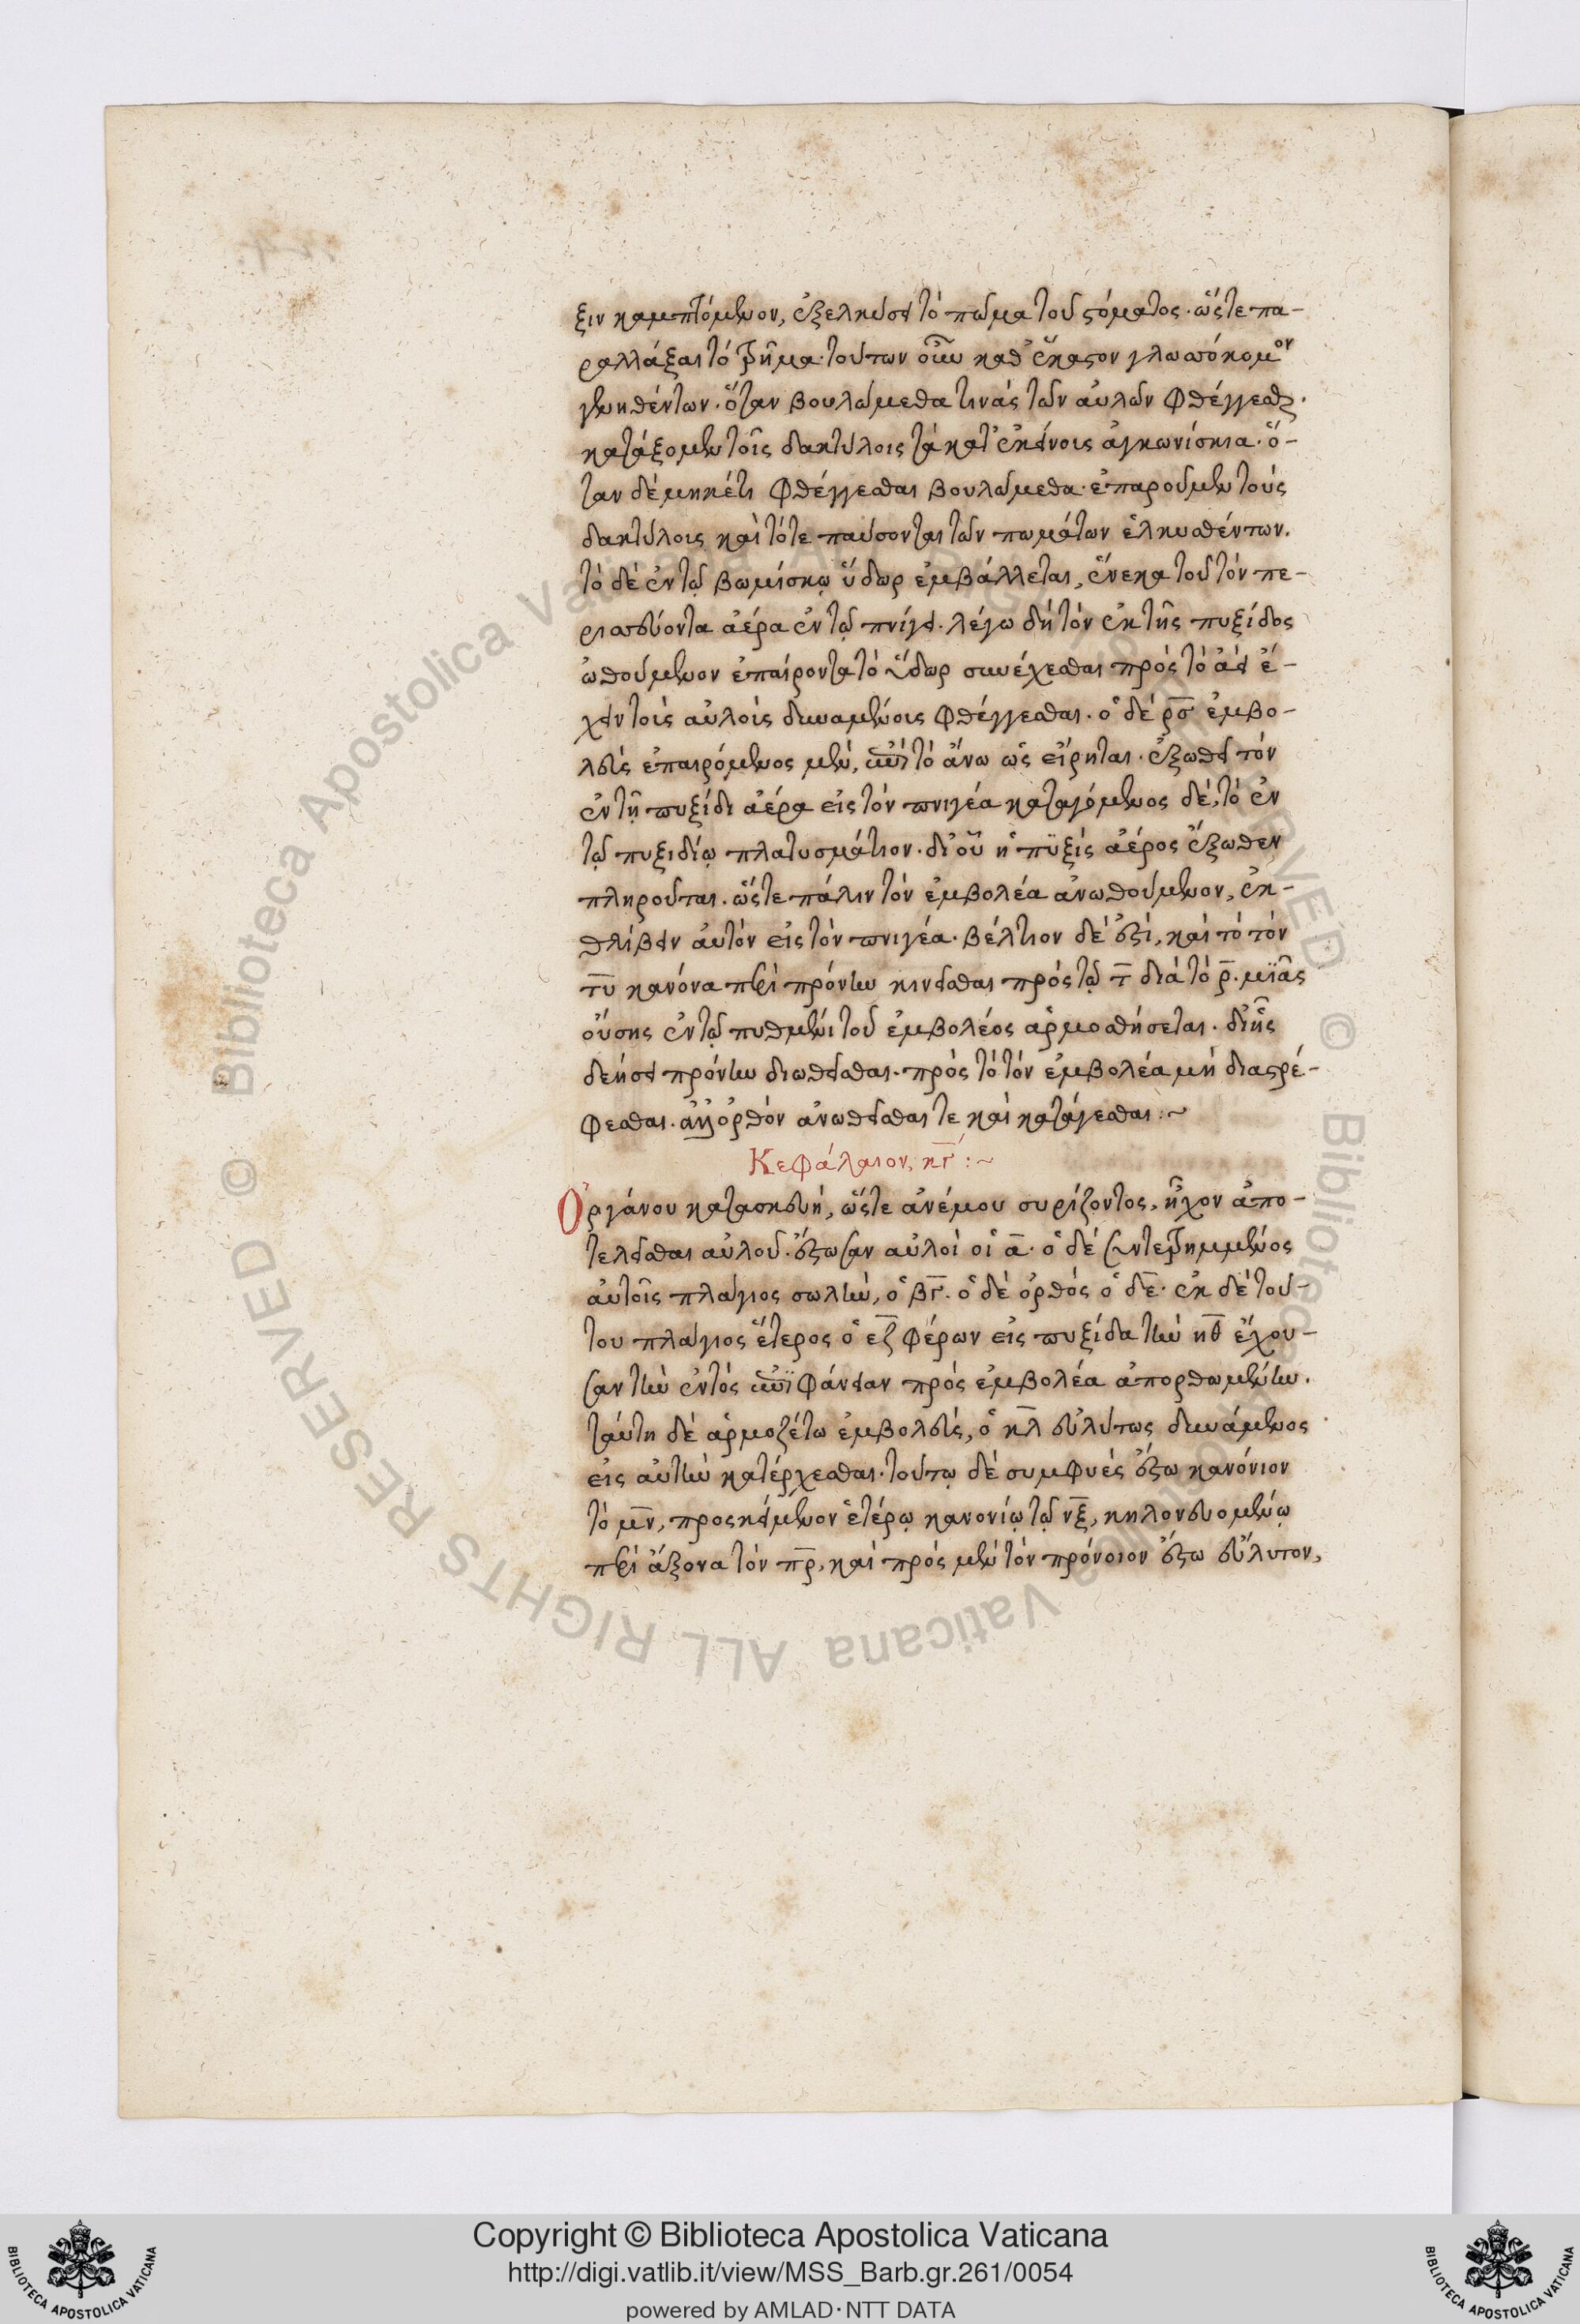 ξιν καμπτόμενον, ἐξελκύσει τὸ πῶμα τοῦ στόματος· ὥστε πα-
ραλλάξαι τὸ τρῆμα· τούτων οὖν καθ' ἕκαστον γλωσσόκομον
γενηθέντων· ὅταν βουλώμεθα τινὰς τῶν αὐλῶν φθέγγεσθαι·
κατάξομεν τοῖς δακτύλοις τὰ κατ' ἐκείνοις ἀγκωνίσκια· ὅ-
ταν δὲ μηκέτι φθέγγεσθαι βουλώμεθα· ἐπαροῦμεν τοὺς
δακτύλοις καὶ τότε παύσονται τῶν πωμάτων ἑλκυσθέντων.
τὸ δὲ ἐν τῷ βωμίσκῳ ὕδωρ ἐμβάλλεται, ἕνεκα τοῦ τὸν πε-
ρισσεύοντα ἀέρα ἐν τῷ πνίγει· λέγω δὴ τὸν ἐκ τῆς πυξίδος
ὠθούμενον ἐπαίροντα τὸ ὕδωρ συνέχεσθαι πρὸς τὸ ἀεὶ ἔ-
χειν τοῖς αὐλοῖς δυναμένοις φθέγγεσθαι. ὁ δὲ ρσ ἐμβο-
λεὺς ἐπαιρόμενος μὲν, ἐπὶ τὸ ἄνω ὡς εἴρηται· ἐξωθεῖ τὸν
ἐν τῇ πυξίδι ἀέρα εἰς τὸν πνιγέα καταγόμενος δὲ, τὸ ἐν
τῷ πυξιδίῳ πλατυσμάτιον· δι' οὗ ἡ πυξὶς ἀέρος ἔξωθεν
πληροῦται. ὥστε πάλιν τὸν ἐμβολέα ἀνωθούμενον, ἐκ-
θλίβειν αὐτὸν εἰς τὸν πνιγέα. βέλτιον δέ ἐστι, καὶ τὸ τὸν
τυ κανόνα περὶ πρόνην κινεῖσθαι πρὸς τῷ τ διὰ τὸ ρ. μϊᾶς
οὔσης ἐν τῷ πυθμένι τοῦ ἐμβολέος ἁρμοσθήσεται. δι' ἧς
δεήσει πρόνην διωθεῖσθαι· πρὸς τὸ τὸν ἐμβολέα μὴ διαστρέ-
φεσθαι. ἀλλ' ὀρθὸν ἀνωθεῖσθαι τε καὶ κατάγεσθαι :~
Κεφάλαιον, κγ' :~
Ὀργάνου κατασκευή, ὥστε ἀνέμου συρίζοντος, ἦχον ἀπο-
τελεῖσθαι αὐλοῦ. ἔστωσαν αὐλοὶ οἱ α· ὁ δὲ συντετρημμένος
αὐτοῖς πλάγιος σωλὴν, ὁ βγ. ὁ δὲ ὀρθὸς ὁ δε· ἐκ δὲ τού-
του πλάγιος ἕτερος ὁ εζ φέρων εἰς πυξίδα τὴν ηθ ἔχου-
σαν τὴν ἐντὸς ἐπϊφάνειαν πρὸς ἐμβολέα ἀπορθωμένην.
ταύτη δὲ ἁρμοζέτω ἐμβολεὺς, ὁ κλ εὐλύτως δυνάμενος
εἰς αὐτὴν κατέρχεσθαι. τούτῳ δὲ συμφυὲς ἔστω κανόνιον
τὸ μν, προσκείμενον ἑτέρῳ κανονίῳ τῷ νξ, κηλονευομένῳ
περὶ ἄξονα τὸν πρ, καὶ πρὸς μὲν τὸν πρόνοιον ἔστω εὔλυτον,
Copyright © Biblioteca Apostolica Vaticana
http://digi.vatlib.it/view/MSS_Barb.gr.261/0054
powered by AMLAD·NTT DATA
BIBLIOTECA APOSTOLICA VATICANA
BIBLIOTECA APOSTOLICA VATICANA
© Biblioteca Apostolica Vaticana ALL RIGHTS RESERVED
© Biblioteca Apostolica Vaticana ALL RIGHTS RESERVED